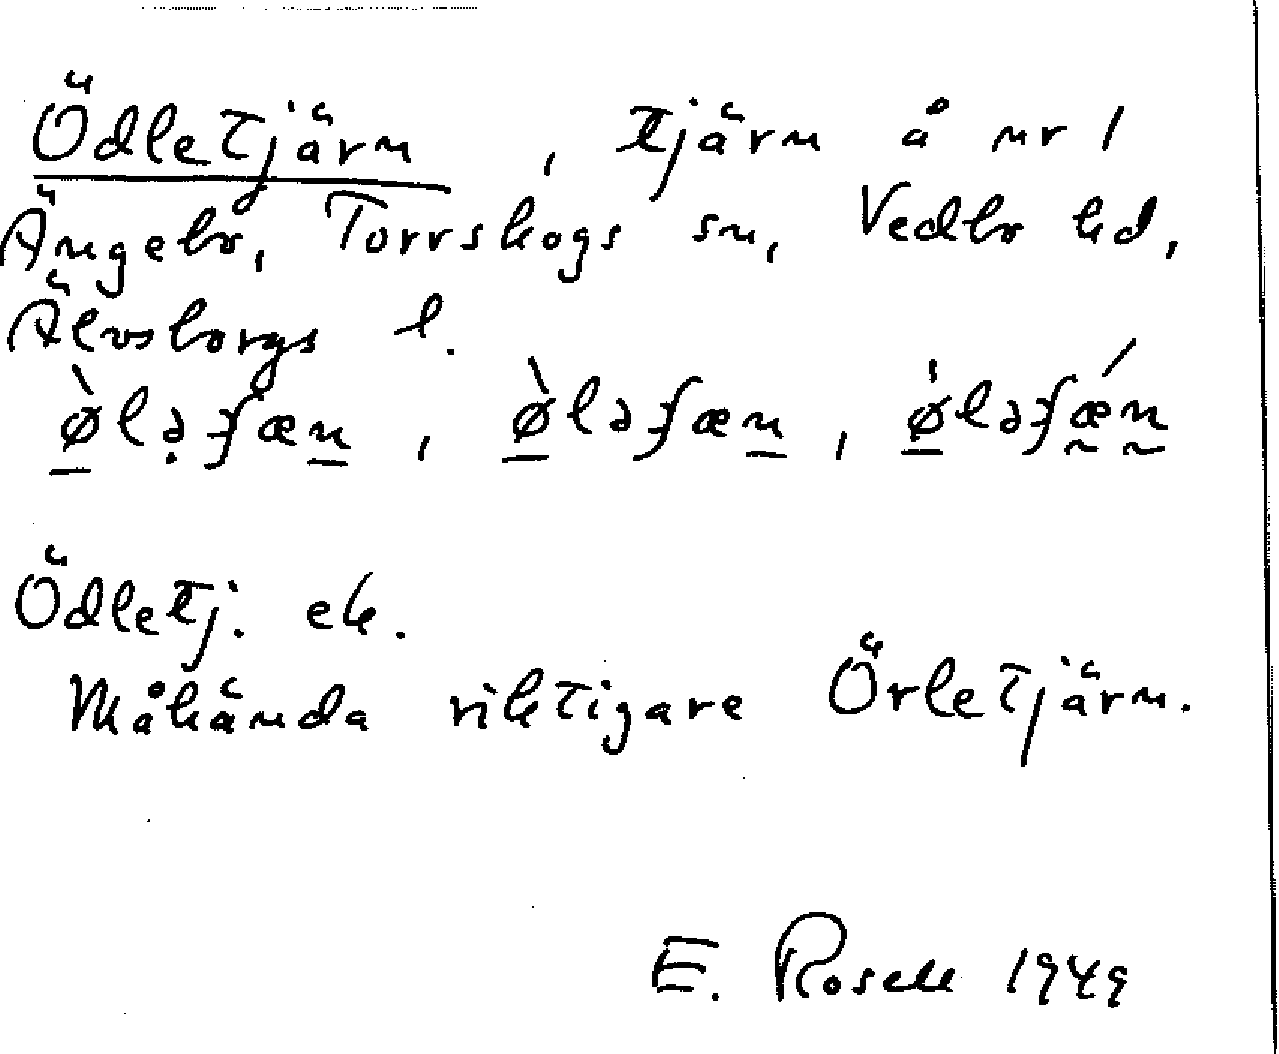 Ödletjärn, tjärn å nr 1
Ängebo, Torrskogs sn, Vedbo hd,
Älvsborgs l.
ø̠̀lə̣ʃæn̠, ø̠̀ləʃæn̠, ø̠̍ləʃǽ̰n̰
Ödletj. ek.
Måhända riktigare Örletjärn.
E. Rosell 1949